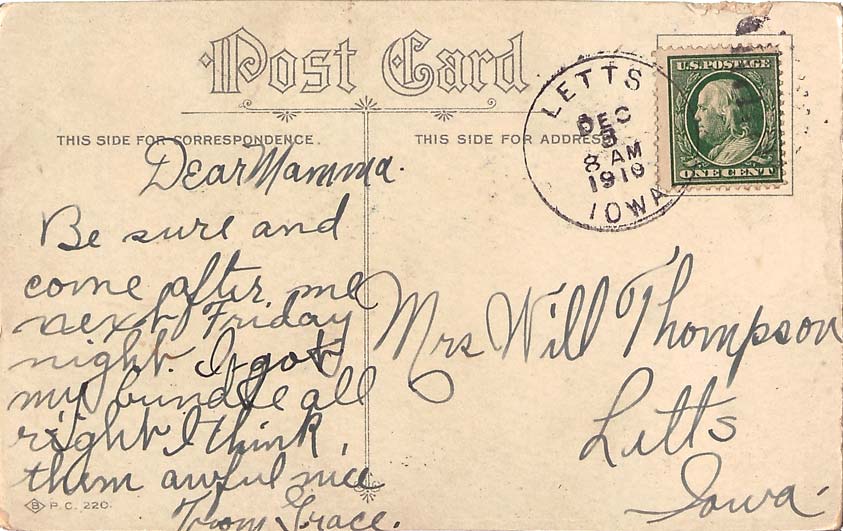 Post Card
THIS SIDE FOR CORRESPONDENCE.
THIS SIDE FOR ADDRESS.
LETTS
DEC
5
8 AM
1910
IOWA
U.S. POSTAGE
ONE CENT
Dear Mamma.
Be sure and
come after me
next Friday
night. I got
my bundle all
right I think
them awful nice
From Grace.
Mrs Will Thompson
Letts
Iowa.
B P.C. 220.